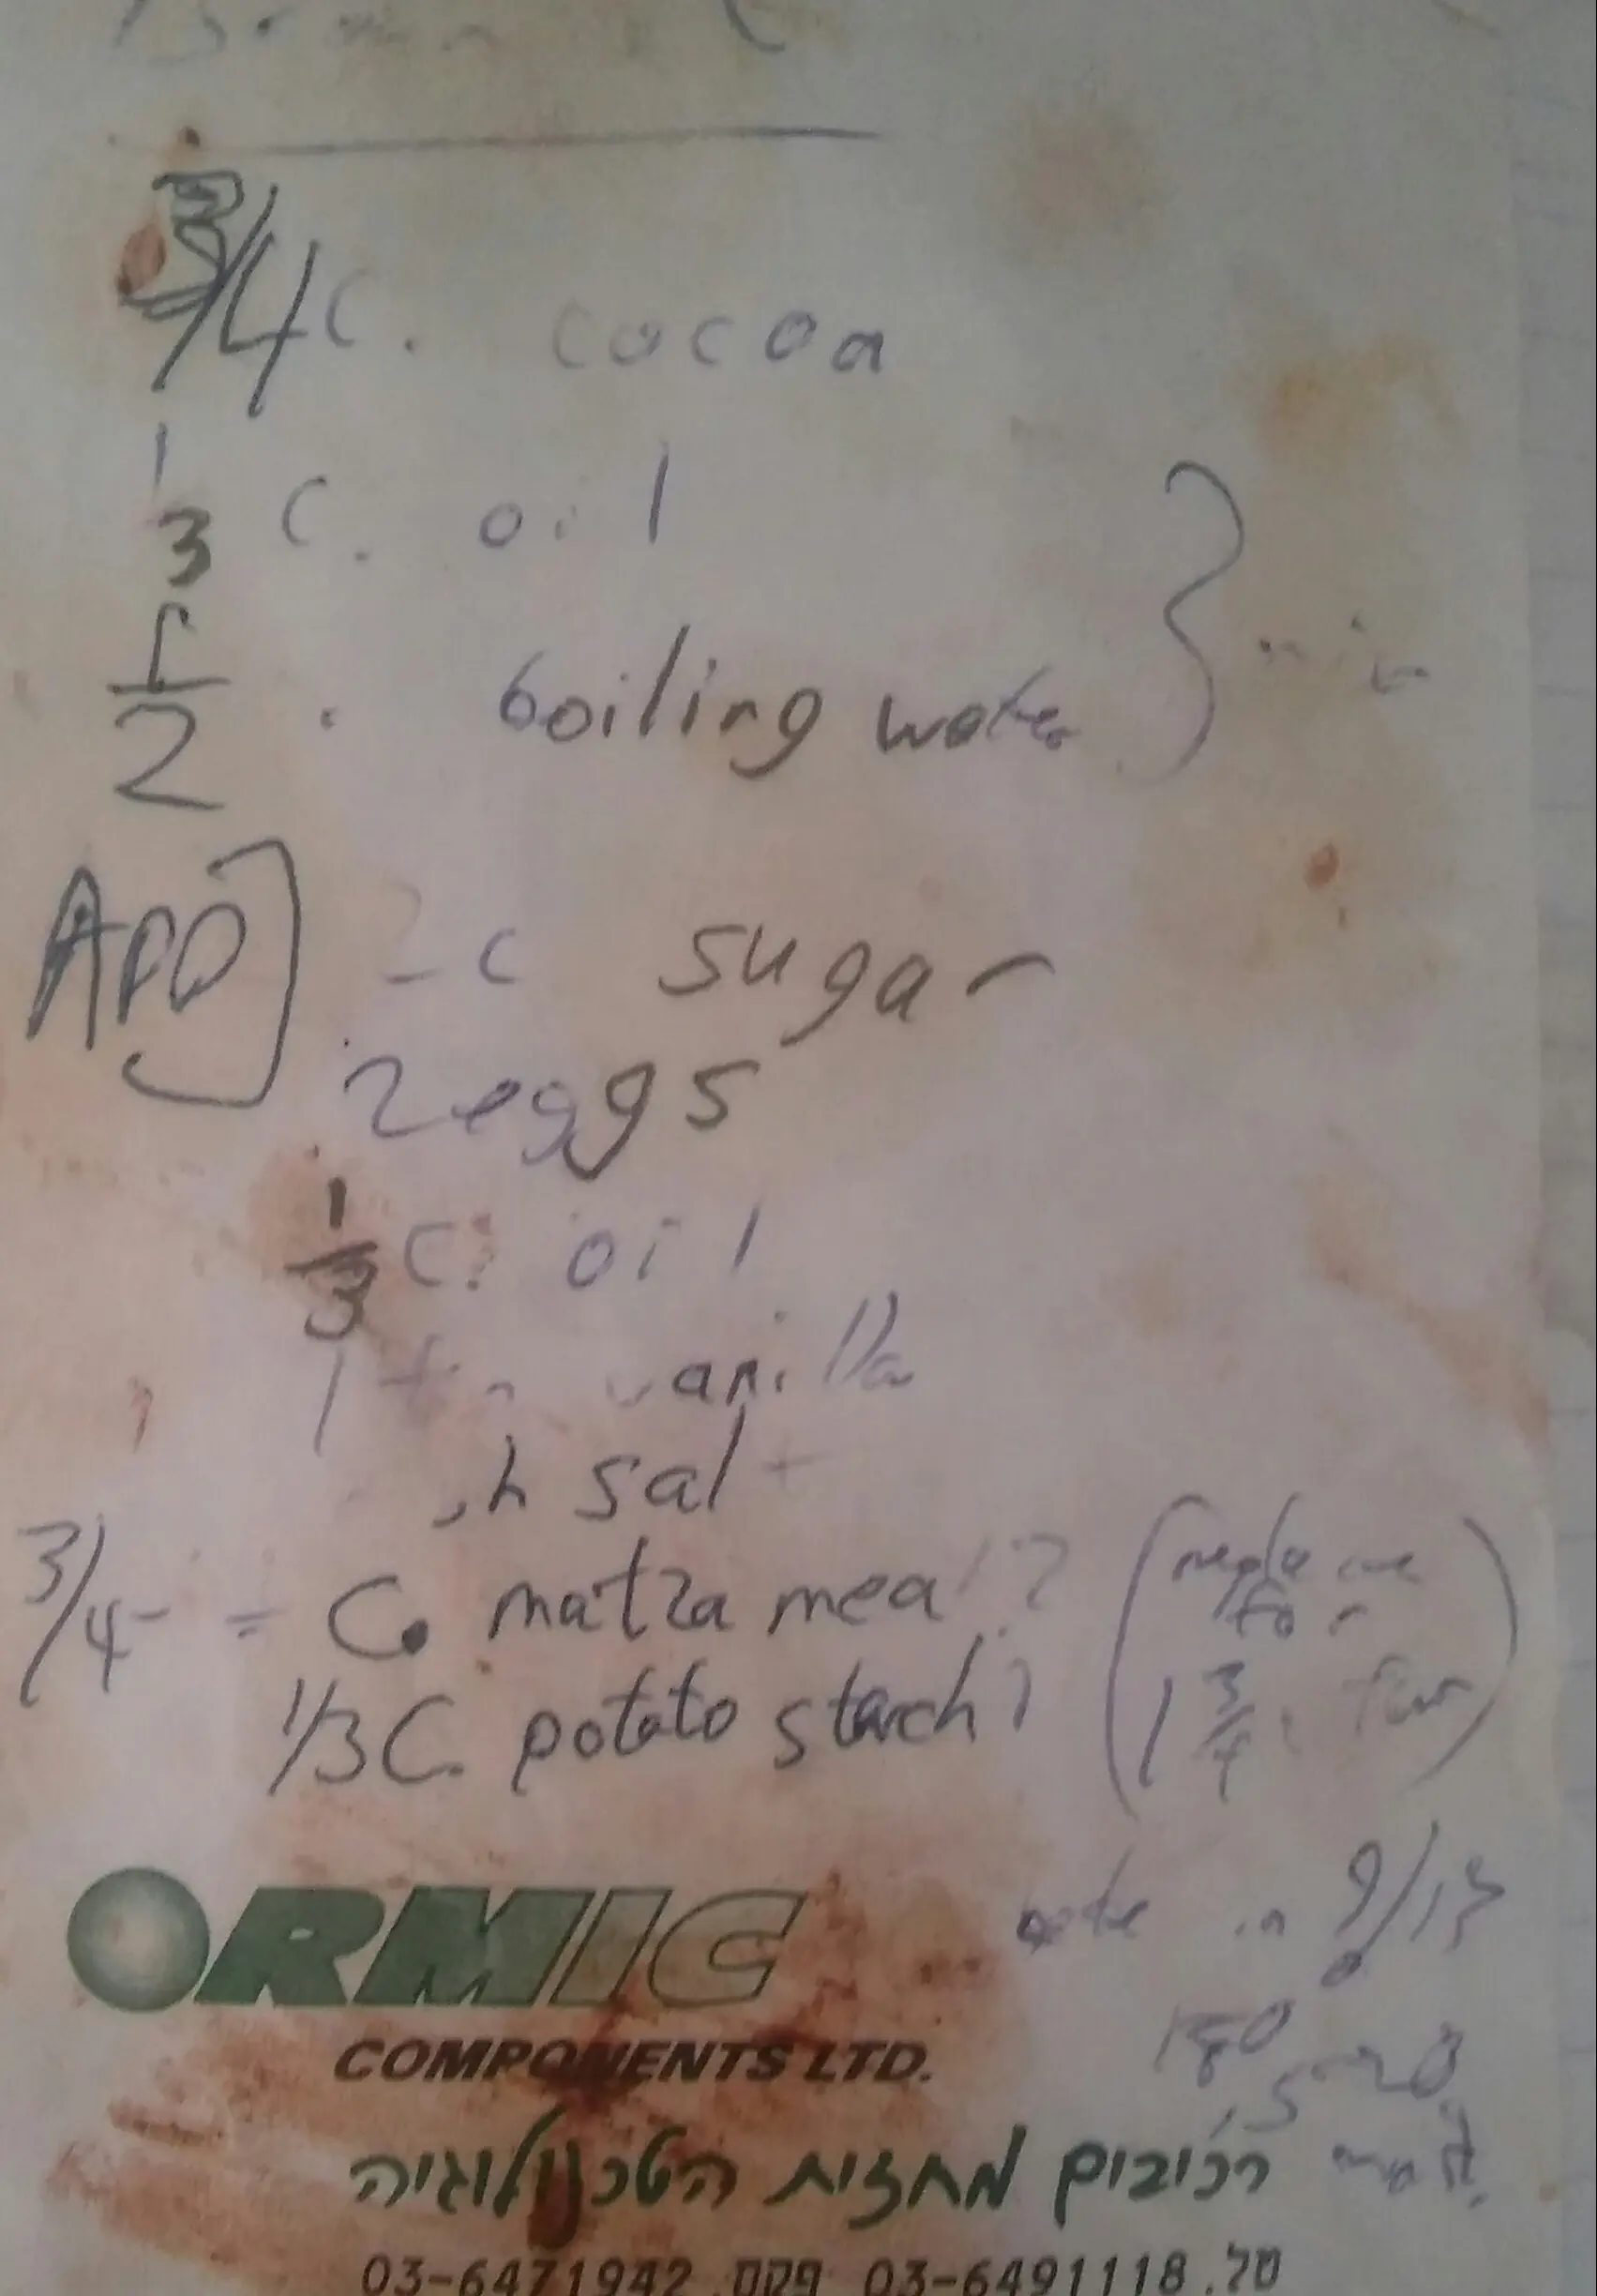 3/4 c. cocoa
1/3 c. oil
1/2 . boiling water
ADD] 2 c sugar
2 eggs
1/3 c. oil
1 vanilla
salt
3/4 C. matza meal? (replace
for
1/3 C. potato starch? 1 3/4
in 9/13
ORMIC
180
COMPONENTS LTD.
15-20
רכיבים מחזית הטכנולוגיה
טל. 03-6491118 פקס. 03-6471942